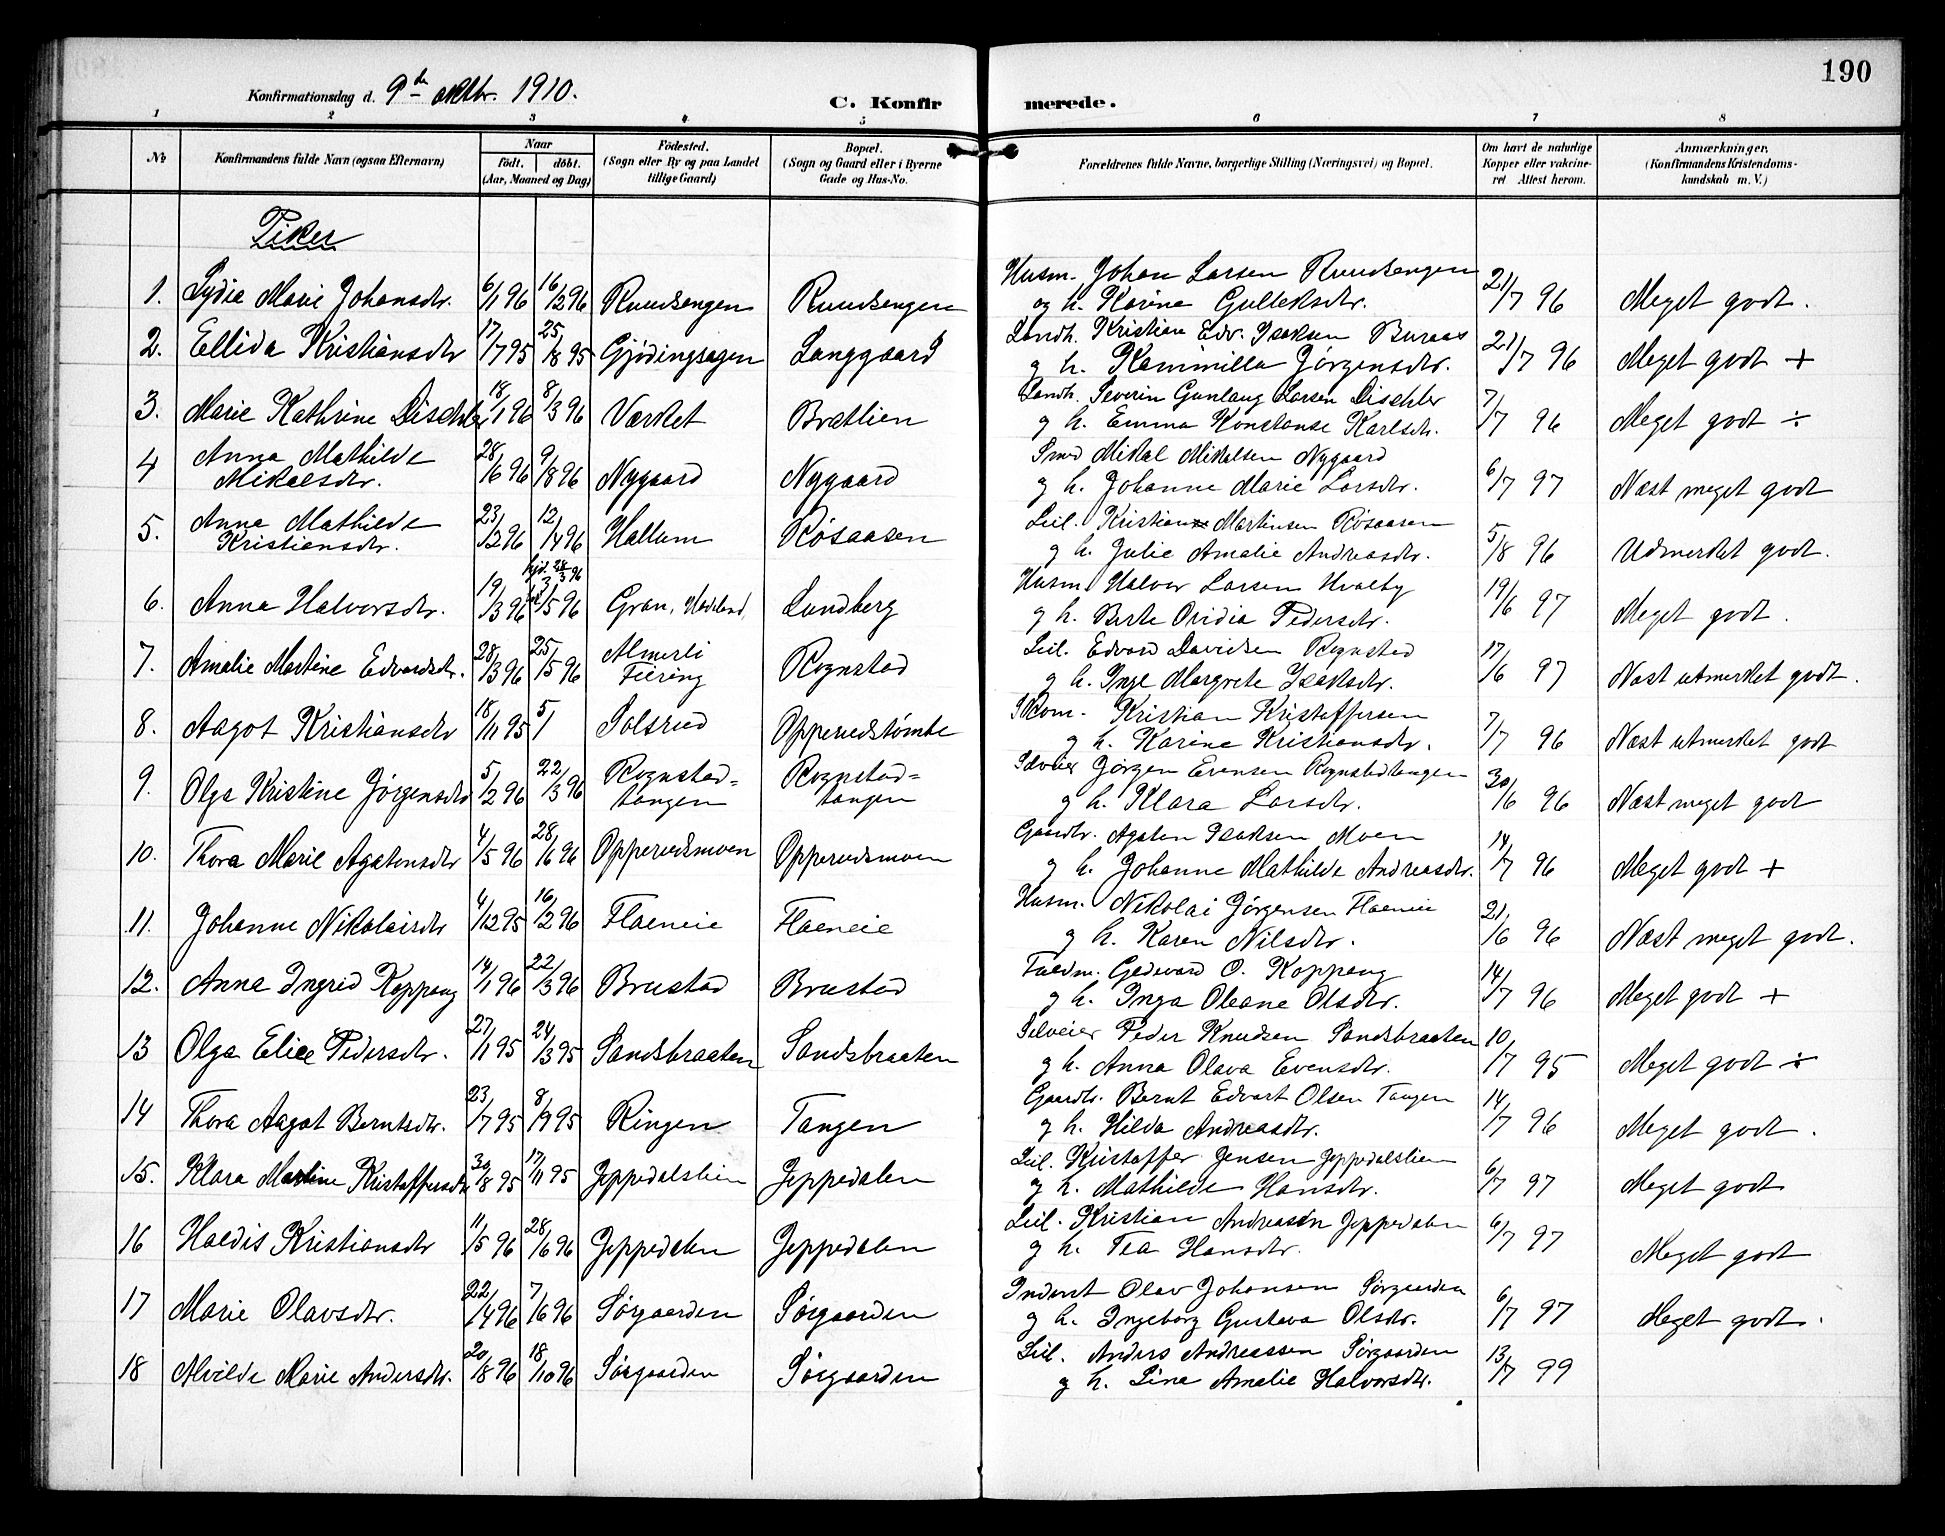 190
Konfirmationsdag d. 9de oktbr. 1910.
C. Konfirmerede.
1 2 3 4 5 6 7 8
No
Konfirmandens fulde Navn (ogsaa Efternavn)
Naar
født. døbt.
(Aar, Maaned og Dag)
Fødested.
(Sogn eller By og paa Landet
tillige Gaard)
Bopæl.
(Sogn og Gaard eller i Byerne
Gade og Hus-No.
Forældrenes fulde Navne, borgerlige Stilling (Næringsvei) og Bopæl.
Om havt de naturlige
Kopper eller vakcine-
ret Attest herom.
Anmærkninger.
(Konfirmandens Kristendoms-
kundskab m. V.)
Piker
Husm. Johan Larsen Ruudsengen
1. Lydia Marie Johansdtr. 6/1 96 16/2 96 Ruudsengen Ruudsengen og h. Karine Gulleksdtr. 21/7 96 Meget godt.
Landh. Kristian Edv. Isaksen Buraas
2. Ellida Kristiansdtr 17/7 95 25/8 95 Gjødingsagen Langgaard g h. Kammilla Jørgensdtr. 21/7 96 Meget godt +
Landh. Severin Gunlaug Larsen Dischler
3. Marie Kathrine Dischler 18/1 96 8/3 96 Værket Brætlien g h. Emma Konstanse Karlsdtr. 7/7 96 Meget godt ÷
Smed Mikal Mikalsen Nygaard
4 Anna Mathilde Mikalsdtr. 28/6 96 9/8 96 Nygaard Nygaard g h. Johanne Marie Larsdtr. 6/7 97 Næst meget godt
Leil. Kristian Martinsen Røsaasen
5. Anna Mathilde Kristiansdtr. 23/2 96 12/4 96 Hallum Røsaasen g h. Julie Amalie Andreasdtr. 5/8 96 Udmerket godt.
Husm Halvor Larsen Hvalby
6. Anna Halvorsdtr. 19/3 96 hjd. 28/3 96 3/5 96 Gran, Hadeland, Lundberg g h. Berte Oridia Pedersdtr. 19/6 97 Meget godt.
Leil. Edvard Davidsen Rognstad
7. Amalie Martine Edvardsdtr. 28/3 96 25/5 96 Almerli Feiring Rognstad g h. Inge Margrete Isaksdtr. 17/6 97 Næst utmerket godt.
Skom. Kristian Kristoffersen
8. Aagot Kristiansdtr 18/11 95 5/1 Solsrud Opperudstømte g h. Karine Kristiansdtr. 7/7 96 Næst utmerket godt
Jørgen Evensen Rognstadtangen
9. Olga Kristine Jørgensdtr 5/2 96 22/3 96 Rognstad=tangen Rognstad=tangen g h. Klara Larsdtr. 30/6 96 Næst meget godt
Gaardbr. Agaton Isaksen Moen
10. Thora Marie Agatonsdtr 4/5 96 28/6 96 Opperudsmoen Opperudsmoen g h. Johanne Mathilde Andreasdtr. 14/7 96 Meget godt +
Husm. Nikolai Jørgensen Flaeneie
11. Johanne Nikolaisdtr 4/12 95 16/2 96 Flaeneie Flaeneie g h. Karen Nilsdtr. 21/6 96 Næst meget godt.
Fuldm. Gedevard O. Koppang
12. Anna Ingrid Koppang 14/1 96 22/3 96 Brustad Brustad g h. Inga Oleane Olsdtr. 14/7 96 Meget godt +
Selveier Peder Knudsen Sandsbraaten
13 Olga Elise Pedersdtr. 27/1 95 24/3 95 Sandsbraaten Sandsbraaten g h. Anna Olava Evensdtr. 10/7 95 Meget godt ÷
Gaardbr. Bernt Edvart Olsen Tangen
14 Thora Aagot Berntsdtr. 23/7 95 8/9 95 Ringen Tangen g h. Hilda Andreasdtr. 14/7 96 Meget godt.
Leil. Kristoffer Jensen Jeppedalslien
15. Klara Martine Kristoffersdtr 30/8 95 17/11 95 Jeppedalslien Jeppedalen g h. Mathilde Hansdtr. 6/7 97 Meget godt
Leil. Kristian Andreasen Jeppedalen
16 Haldis Kristiansdtr 11/5 96 28/6 96 Jeppedalen Jeppedalen g h. Tea Hansdtr. 6/7 97 Meget godt
Inderst Olav Johansen Sørgaarden
17 Marie Olavsdtr. 22/4 96 7/6 96 Sørgaarden Sørgaarden g h. Ingeborg Gustava Olsdtr. 6/7 97 Meget godt.
Leil. Anders Andreassen Sørgaarden
18 Alvilde Marie Andersdtr. 20/8 96 18/10 96 Sørgaarden Sørgaarden g h. Lina Amalie Halvorsdtr. 13/7 99